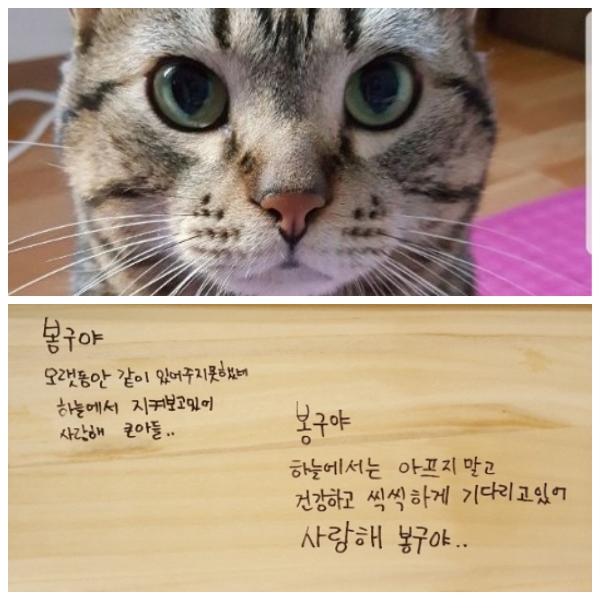 봉구야
오랫동안 같이 있어주지못했네
하늘에서 지켜보고있어
사랑해 큰아들..
봉구야
하늘에서는 아프지말고
건강하고 씩씩하게 기다리고있어
사랑해 봉구야..